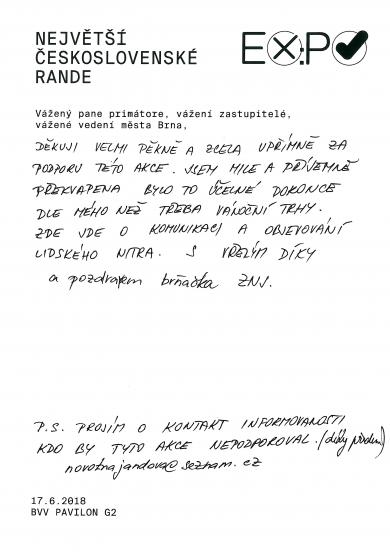 NEJVĚTŠÍ
ČESKOSLOVENSKÉ
RANDE
EX:PO
Vážený pane primátore, vážení zastupitelé,
vážené vedení města Brna,
DĚKUJI VELMI PĚKNĚ A ZCELA UPŘÍMNĚ ZA
PODPORU TÉTO AKCE. JSEM MILE A PŘÍJEMNĚ
PŘEKVAPENA BYLO TO ÚČELNÉ DOKONCE
DLE MÉHO NEŽ TŘEBA VÁNOČNÍ TRHY.
ZDE JDE O KOMUNIKACI A OBJEVOVÁNÍ
LIDSKÉHO NITRA. S VŘELÝM DÍKY
a pozdravem brňačka ZNJ.
P.S. PROSÍM O KONTAKT INFORMOVANOSTI
KDO BY TYTO AKCE NEPODPOROVAL. (díky
novotnajandova@seznam.cz
17.6.2018
BVV PAVILON G2